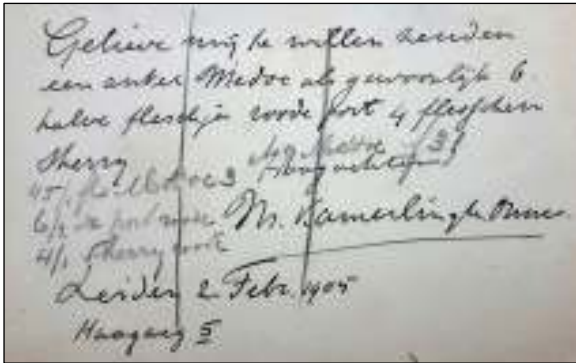 Gelieve mij te willen zenden
een anker Medoc als gewoonlijk 6
halve fleschjes roode port 4 flesschen
Sherry
Hoogachtend
45/1 fl Medoc 3
6/2 fl port roode
M. Kamerlingh Onnes
4/1 Sherry
Leiden 2 Febr. 1905
Haagweg 5